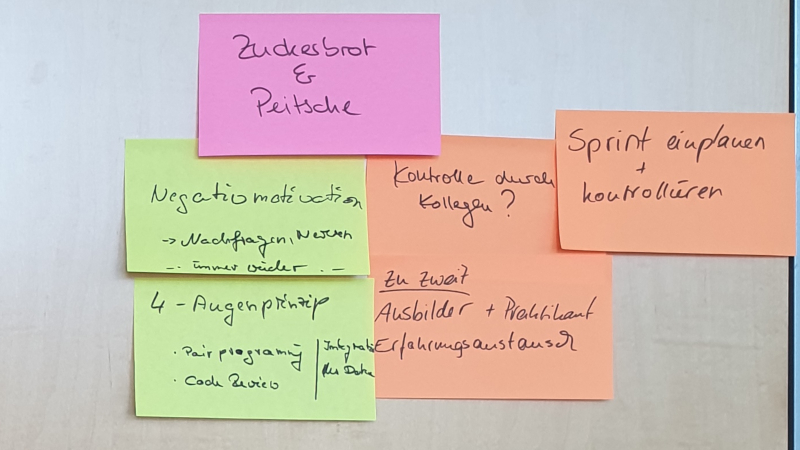 Zuckerbrot
&
Peitsche
Negativmotivation
-> Nachfragen, Nerven
-.- immer wieder -.-
Kontrolle durch
Kollegen?
Sprint einplanen
+
kontrollieren
4-Augenprinzip
· Pair programing
· Code Review
Integrati
der Daten
Zu zweit
Ausbilder + Praktikant
Erfahrungsaustausch